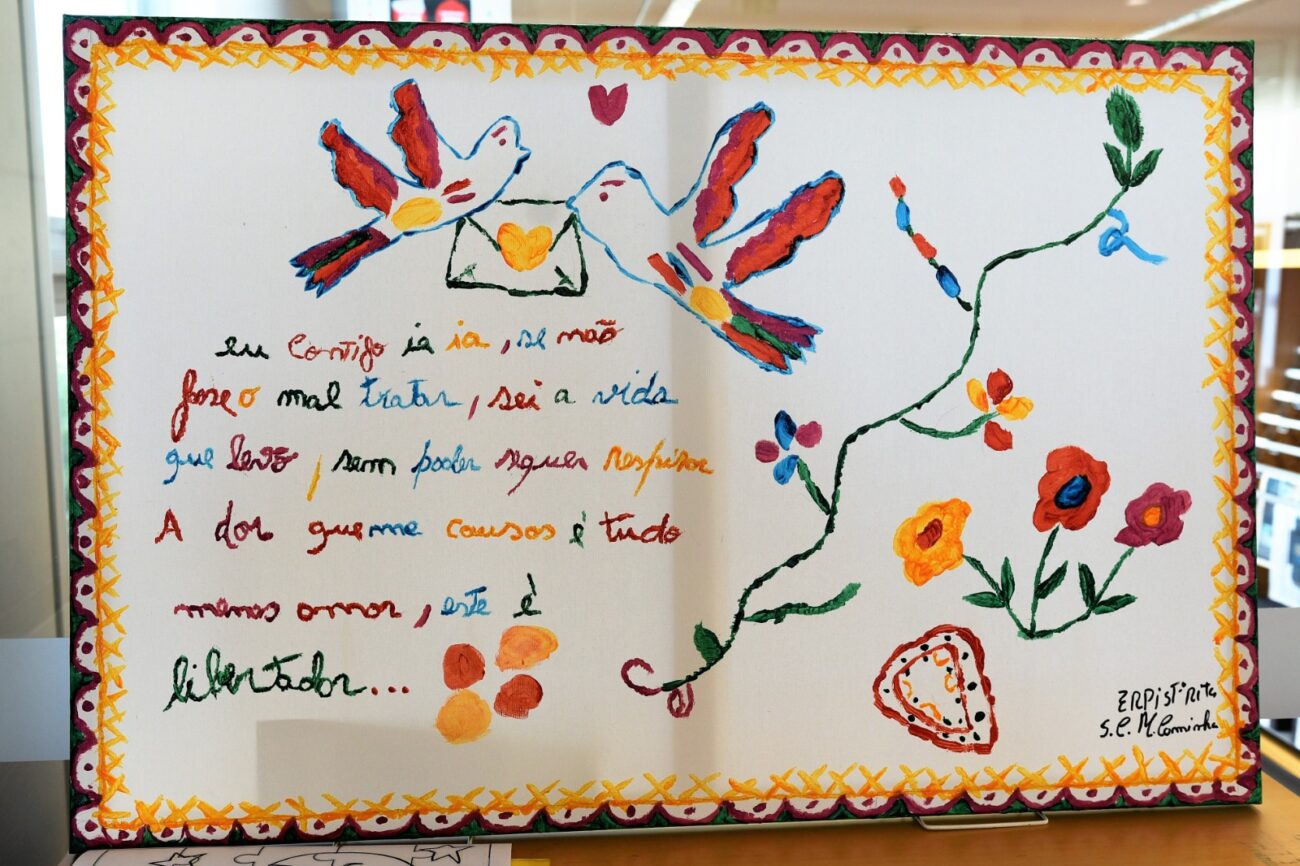 eu contigo ia ia, se não
fose o mal tratar, sei a vida
que levo, sem poder sequer respirar
A dor que me causas é tudo
menos amor, este é
libertador...
ERPI Stª Rita
S. C. M. Caminha